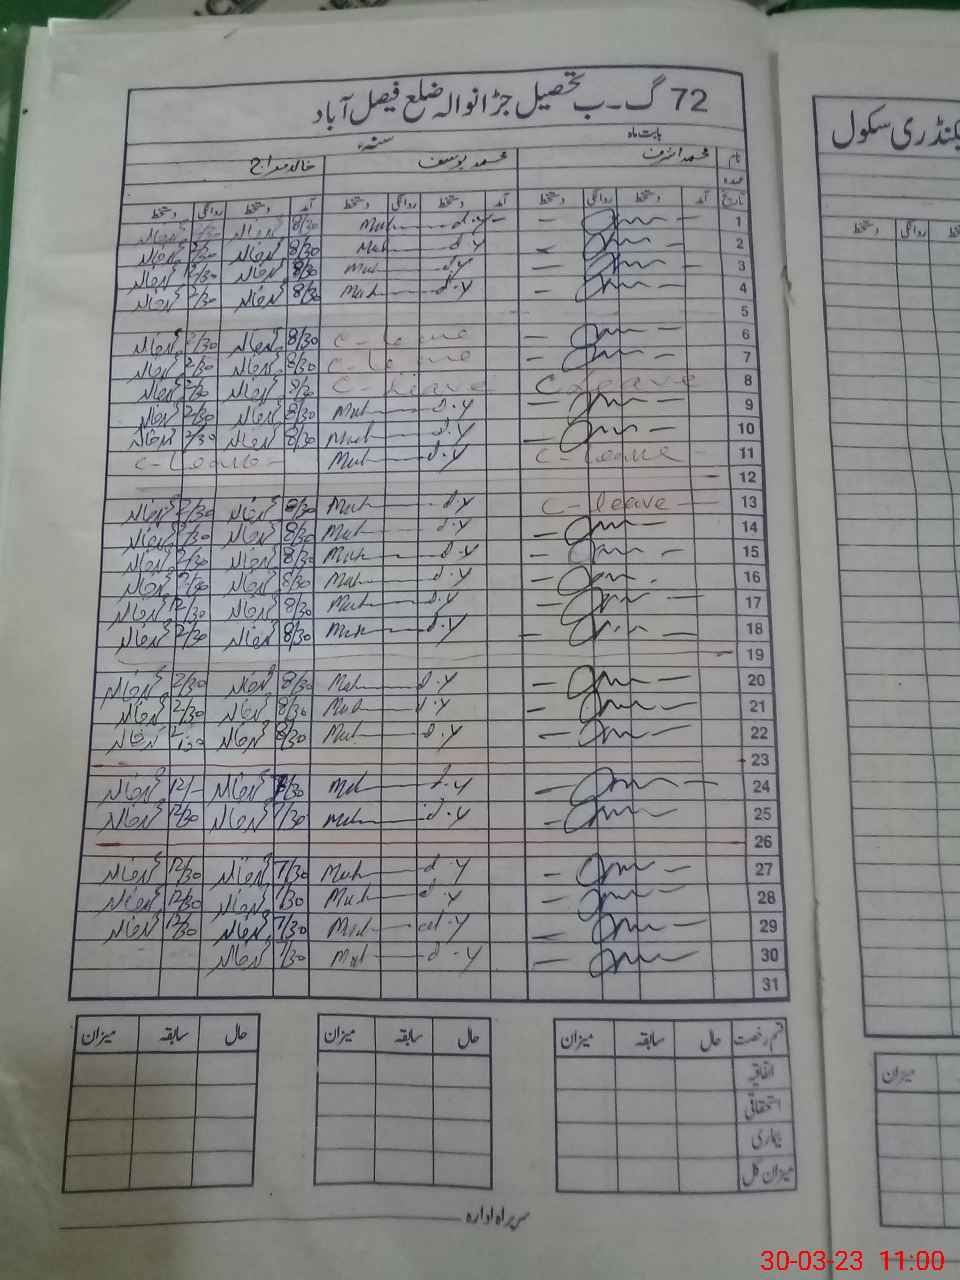 72 گ۔ب تحصیل جڑانوالہ ضلع فیصل آباد
بابت ماہ سنہء
نام محمد اشرف محمد یوسف خالد معراج
عہدہ
تاریخ آمد دستخط روانگی دستخط آمد دستخط روانگی دستخط آمد دستخط روانگی دستخط
1 d.y Muh 8/30
2 d.y Muh 8/30
3 d.y Muh 8/30 12/30
4 d.y Muh 8/30 2/30
5
6 C-leave 8/30 2/30
7 C-leave 8/30 2/30
8 C leave C-Leave 8/30 2/30
9 d.y Muh 8/30 2/30
10 d.y Muh 8/30 2/30
11 C-leave d.y Muh C-leave
12
13 C-leave d.y Muh 8/30 2/30
14 d.y Muh 8/30 2/30
15 d.y Muh 8/30 2/30
16 d.y Muh 8/30 2/30
17 d.y Muh 8/30 12/30
18 d.y Muh 8/30 2/30
19
20 d.y Muh 8/30 2/30
21 d.y Muh 8/30 2/30
22 d.y Muh 8/30
23
24 d.y Muh 12/-
25 d.y Muh 7/30 12/30
26
27 d.y Muh 7/30 12/30
28 d.y Muh 7/30 12/30
29 d.y Muh 7/30 12/30
30 d.y Muh 7/30
31
قسم رخصت حال سابقہ میزان حال سابقہ میزان حال سابقہ میزان
اتفاقیہ
استحقاقی
بیماری
میزان کل
سربراہ ادارہ
یکنڈری سکول
روانگی دستخط
میزان
30-03-23 11:00